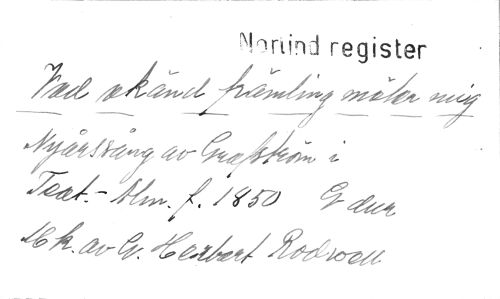 Norlind register
Vad okänd främling möter mig
Nyårssång av Grafström i
Teat.-Alm. f. 1850 G dur
Mk. av G. Herbert Rodwell